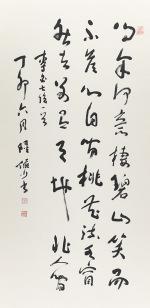 問余何意棲碧山笑而
不答心自閑桃花流水窅
然去别有天地非人間
李白七絶一首
丁卯六月